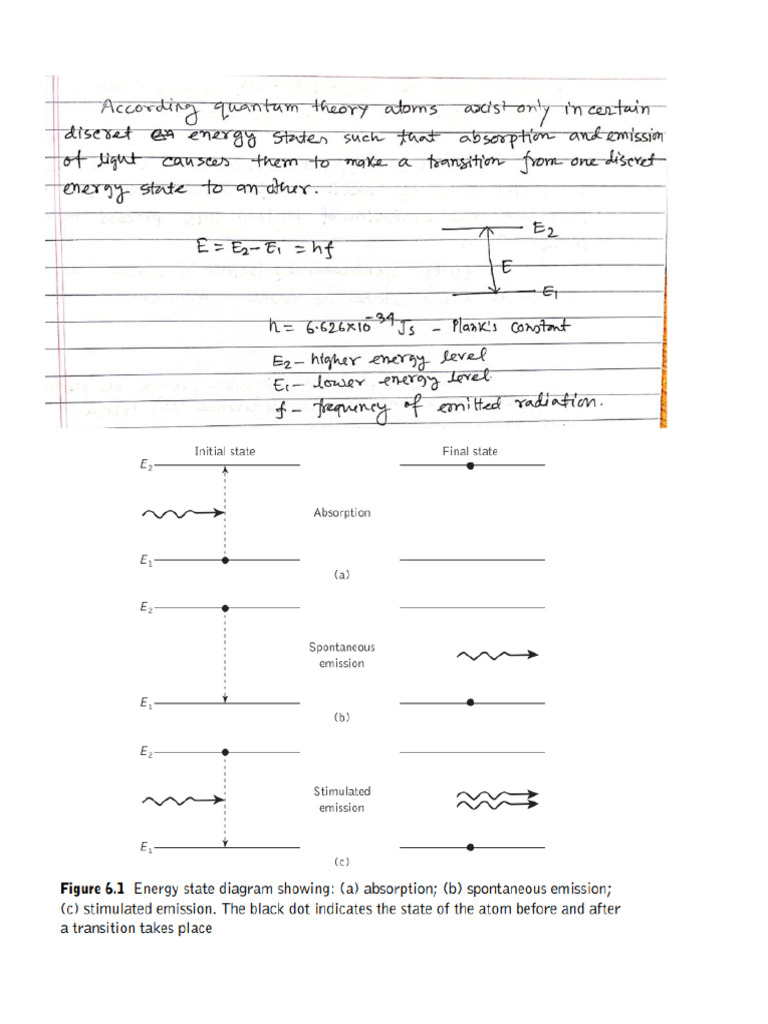 According quantum theory atoms axist only in certain
discret en energy states such that absorption and emission
of light causces them to make a transition from one discret
energy state to an other.
E = E2 - E1 = hf
E2
E
E1
h = 6.626x10^-34 Js - Plank's constant
E2 - higher energy level
E1 - lower energy level.
f - frequency of emitted radiation.
Initial state Final state
E2
Absorption
E1
(a)
E2
Spontaneous
emission
E1
(b)
E2
Stimulated
emission
E1
(c)
Figure 6.1 Energy state diagram showing: (a) absorption; (b) spontaneous emission;
(c) stimulated emission. The black dot indicates the state of the atom before and after
a transition takes place